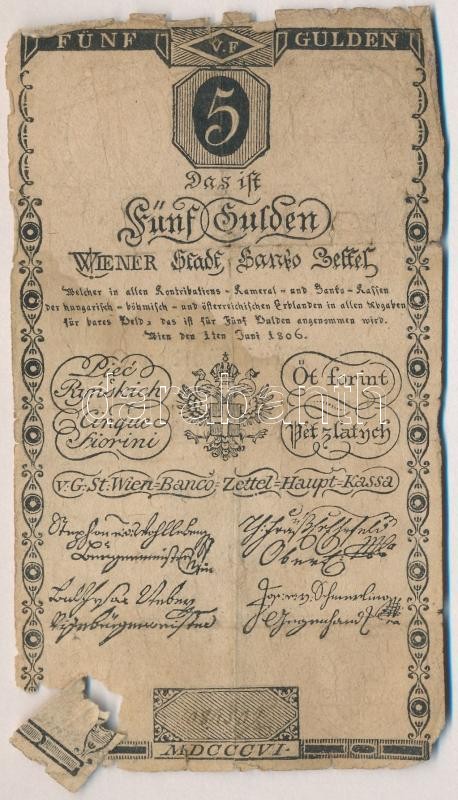 FÜNF V.F GULDEN
5
Das ist
Fünf Gulden
WIENER Stadt Banko Zettel
Welcher in allen Kontributions-Kameral-und Banko-Kassen
der hungarisch-böhmisch-und österreichischen Erblanden in allen Abgaben
für bares Geld, das ist für Fünf Gulden angenommen wird.
Wien den 1ten Juni 1806.
Pięć
Ryńskich
Cinque
Fiorini
Öt forint
Pet zlatych
darabanth
v.G.St:Wien=Banco=Zettel=Haupt=Kassa
Stephan
Burgermeister
Oberl
MDCCCVI.
FÜN